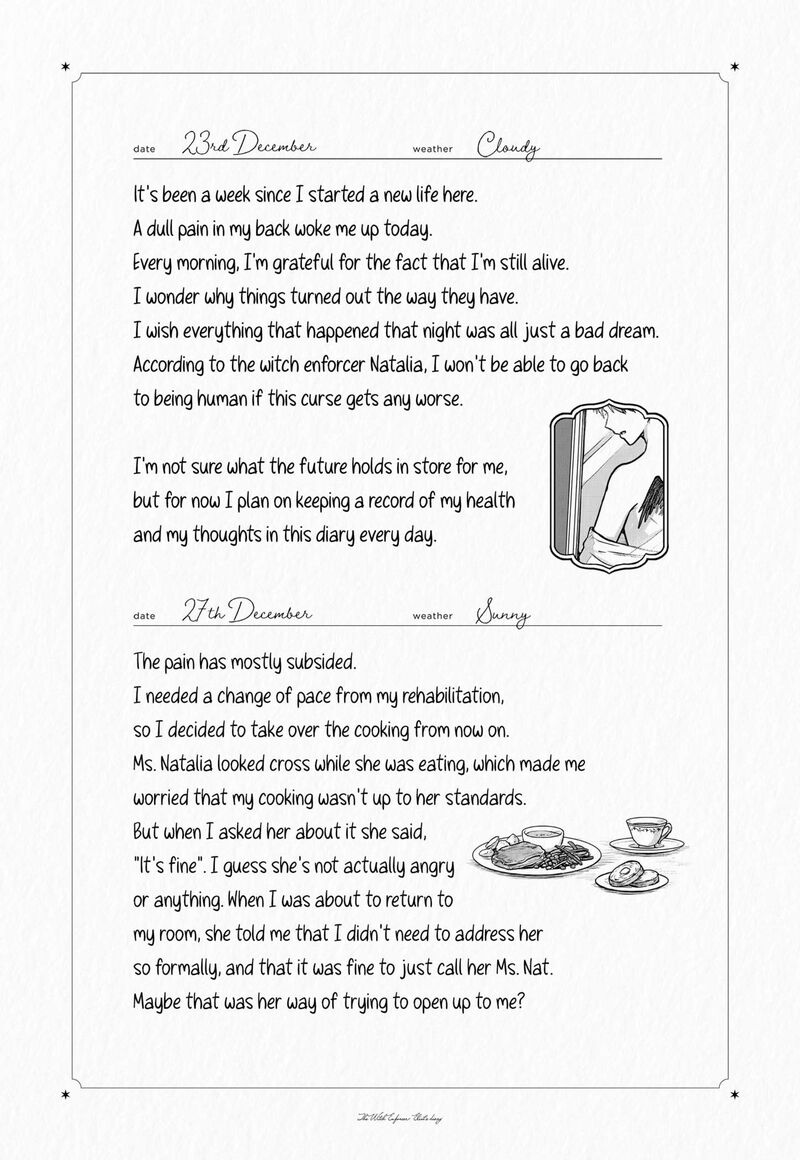 date 23rd December weather Cloudy
It's been a week since I started a new life here.
A dull pain in my back woke me up today.
Every morning, I'm grateful for the fact that I'm still alive.
I wonder why things turned out the way they have.
I wish everything that happened that night was all just a bad dream.
According to the witch enforcer Natalia, I won't be able to go back
to being human if this curse gets any worse.
I'm not sure what the future holds in store for me,
but for now I plan on keeping a record of my health
and my thoughts in this diary every day.
date 27th December weather Sunny
The pain has mostly subsided.
I needed a change of pace from my rehabilitation,
so I decided to take over the cooking from now on.
Ms. Natalia looked cross while she was eating, which made me
worried that my cooking wasn't up to her standards.
But when I asked her about it she said,
"It's fine". I guess she's not actually angry
or anything. When I was about to return to
my room, she told me that I didn't need to address her
so formally, and that it was fine to just call her Ms. Nat.
Maybe that was her way of trying to open up to me?
The Witch Enforcer diary